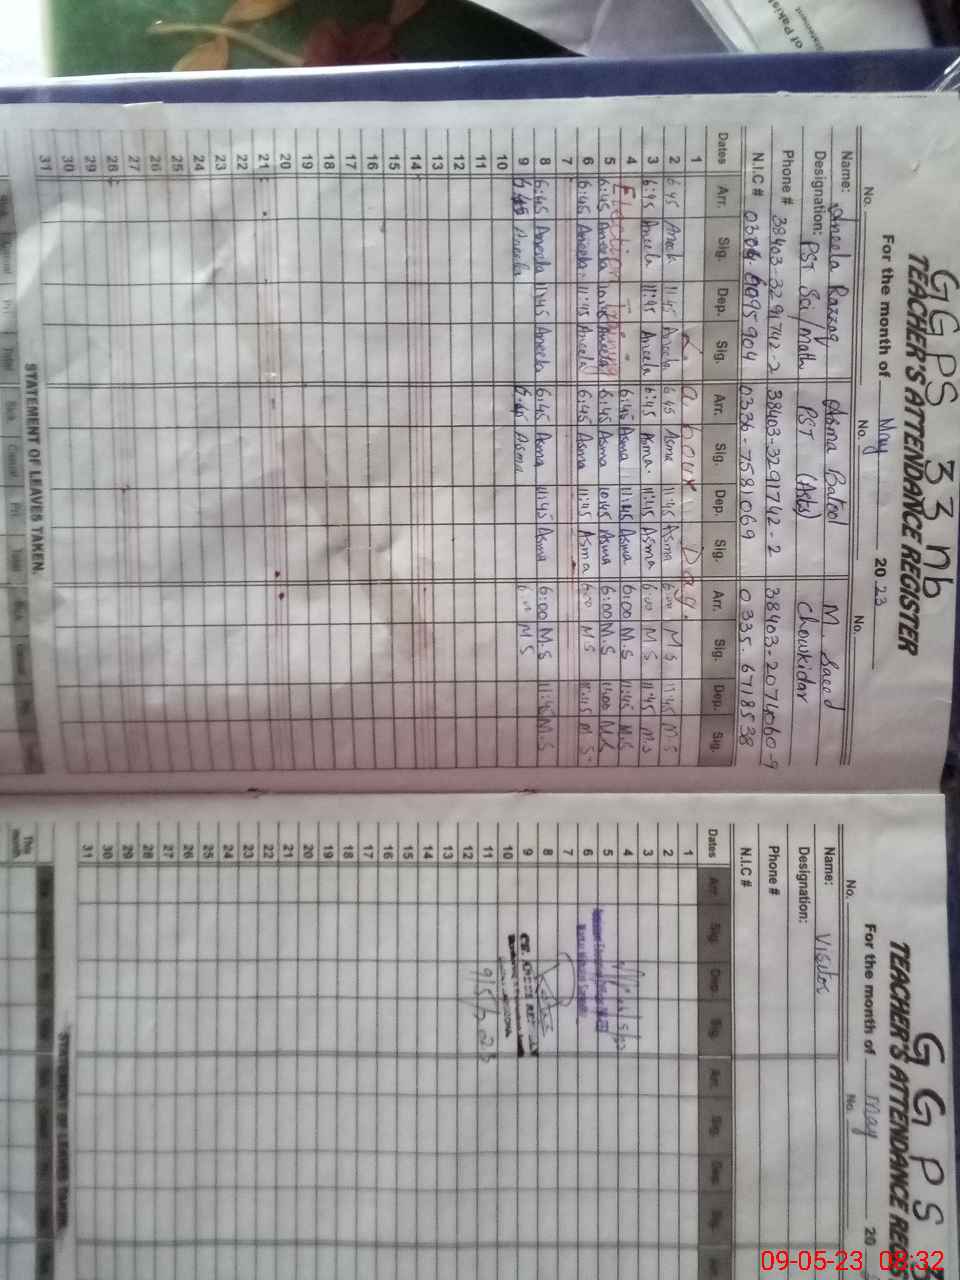 GGPS 33 nb
TEACHER'S ATTENDANCE REGISTER
For the month of May 2023
No. No. No.
Name: Aneela Razzaq Asma Batool M. Saeed
Designation: PST Sci/Math PST (Arts) Chowkidar
Phone # 38403-3291742-2 38403-3291742-2 38403-2074060-9
N.I.C # 0304 6095904 0336-7581069 0335-6718538
Dates Arr. Sig. Dep. Sig. Arr. Sig. Dep. Sig. Arr. Sig. Dep. Sig.
1 Labour Day.
2 6:45 Aneela 11:45 Aneela 6:45 Asma 11:45 Asma 6:00 M.S 11:45 M.S
3 6:45 Aneela 11:45 Aneela 6:45 Asma. 11:45 Asma 6:00 M.S 11:45 M.S
4 Election 6:45 Asma 11:45 Asma 6:00 M.S 11:45 M.S
5 6:45 Aneela 10:45 Aneela 6:45 Asma 10:45 Asma 6:00 M.S 11:00 M.S
6 6:45 Aneela 11:45 Aneela 6:45 Asma 11:45 Asma 6:00 M.S 11:45 M.S
7
8 6:45 Aneela 11:45 Aneela 6:45 Asma 11:45 Asma 6:00 M.S 11:45 M.S
9 6:45 Aneela 6:45 Asma 6:00 M S
10
11
12
13
14
15
16
17
18
19
20
21
22
23
24
25
26
27
28
29
30
31
STATEMENT OF LEAVES TAKEN.
GGPS 3
TEACHER'S ATTENDANCE REGIS
For the month of May 20
No. No.
Name: Visitor
Designation:
Phone #
N.I.C #
Dates Arr. Sig. Dep. Sig. Arr. Sig. Dep. Sig.
1
2
3
4
5
6
7
8
9
10
11 9/5/2023
12
13
14
15
16
17
18
19
20
21
22
23
24
25
26
27
28
29
30
31
STATEMENT OF LEAVES TAKEN.
This month
of Pakist
09-05-23 08:32